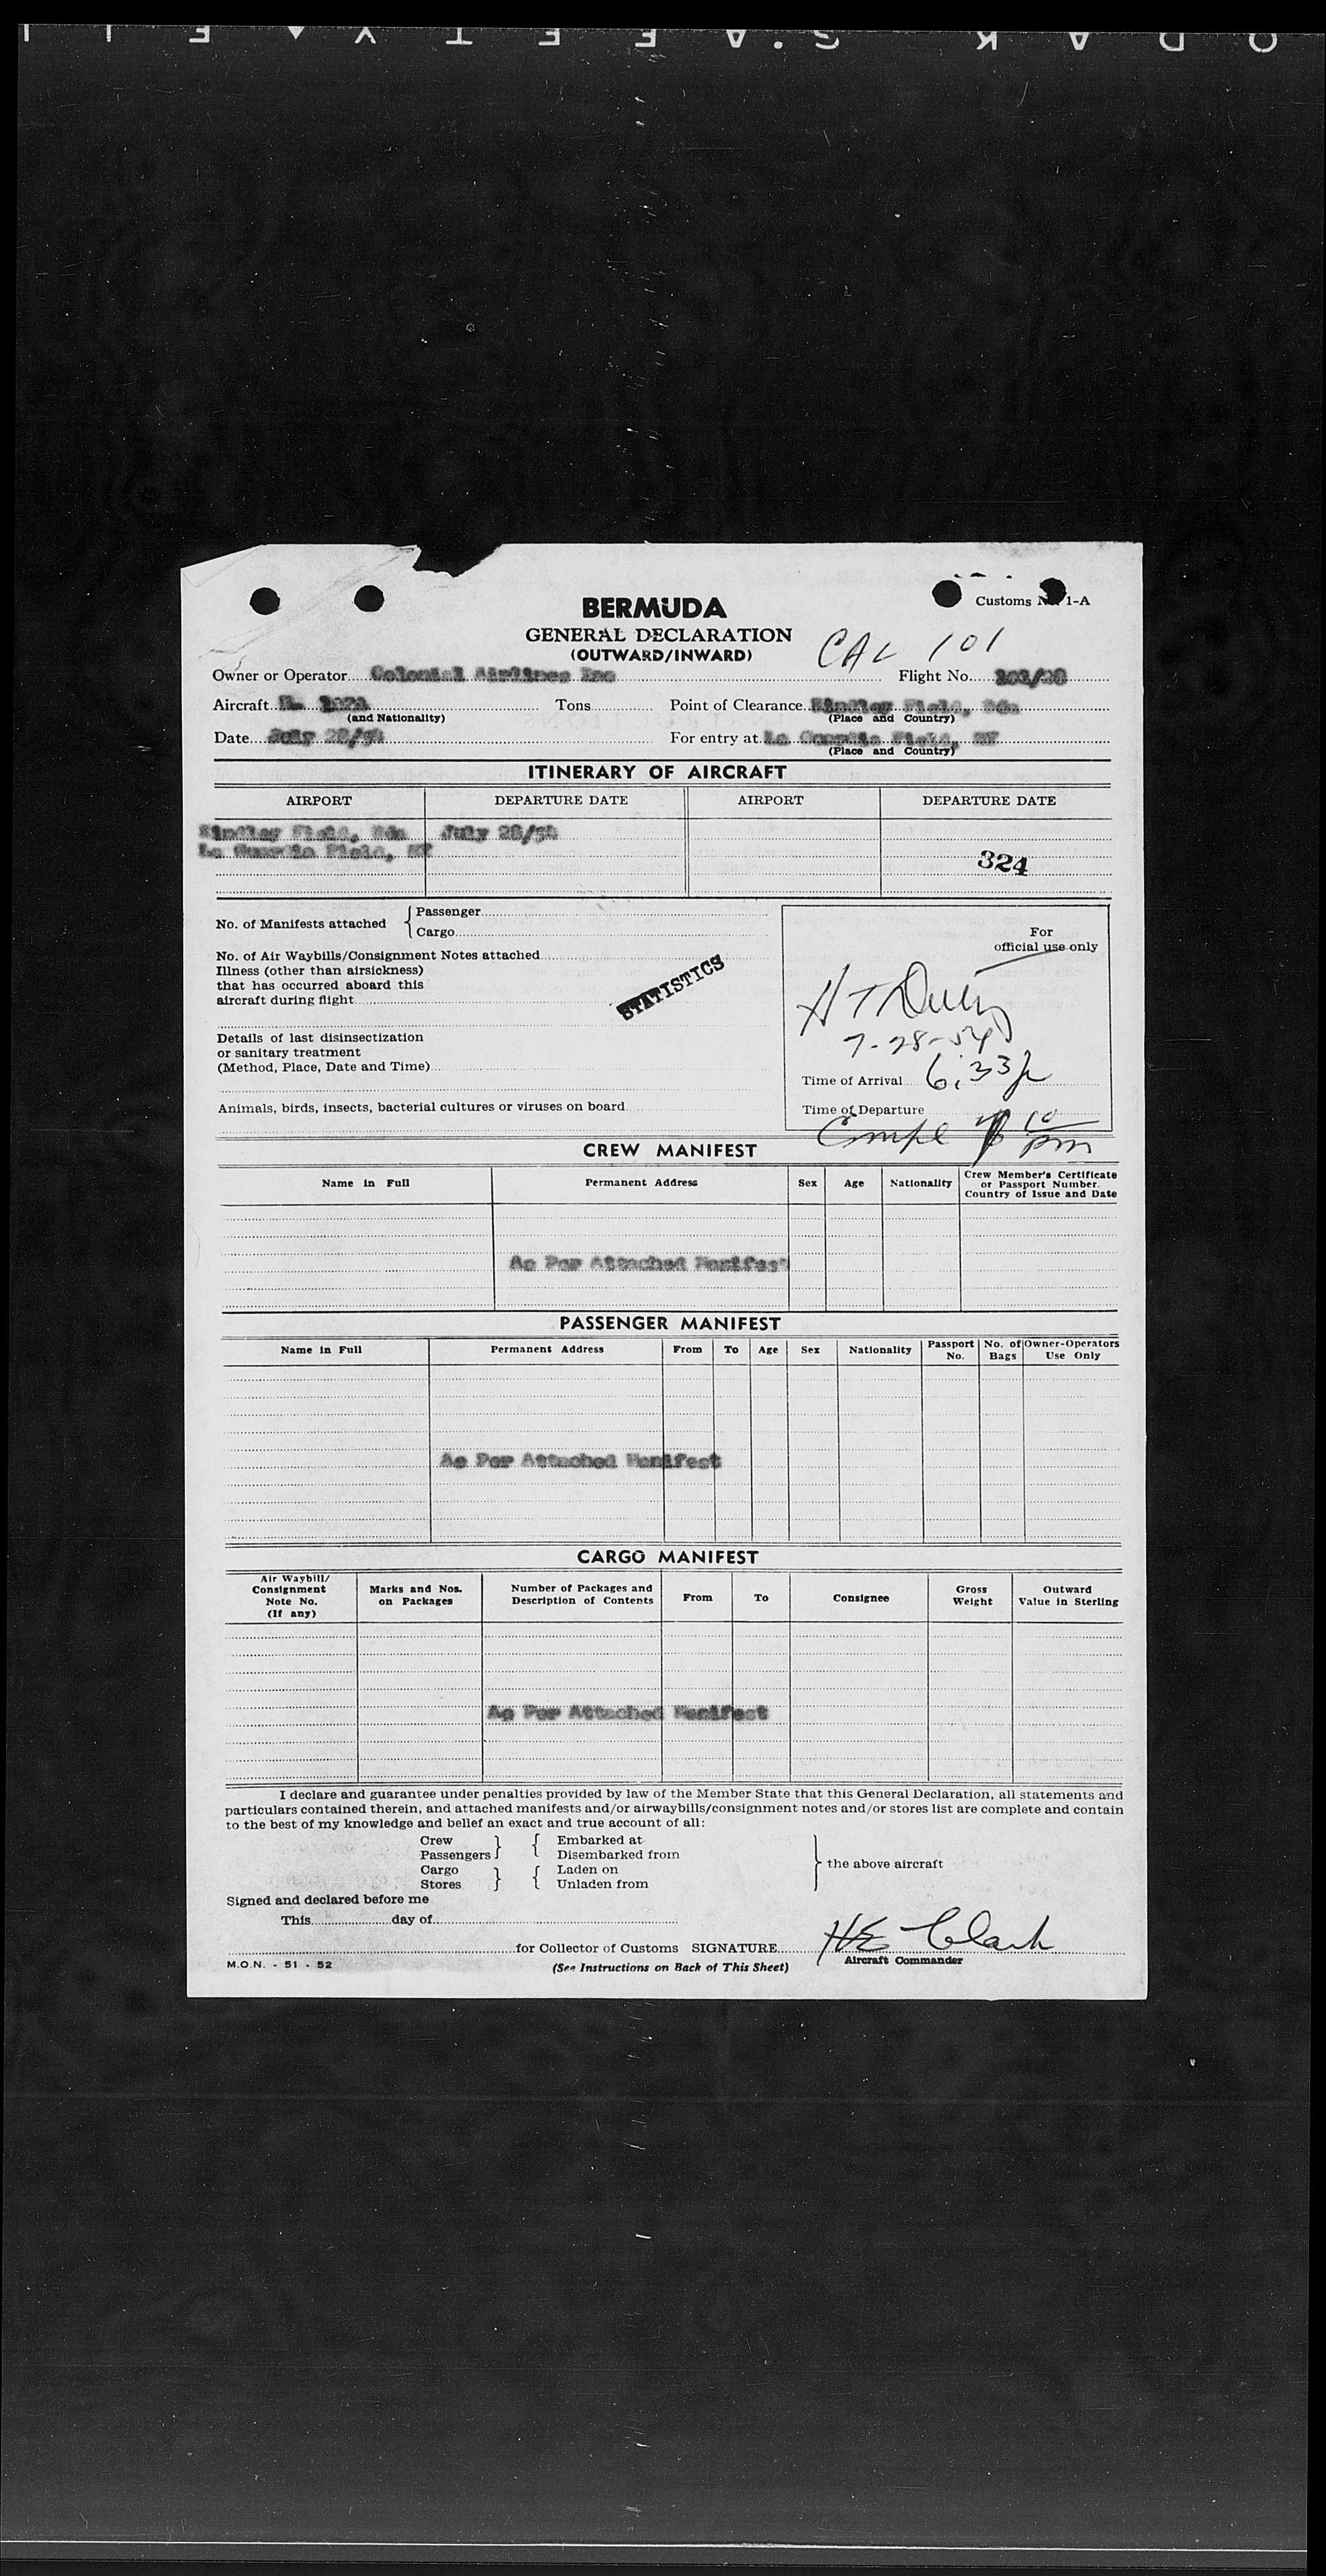 BERMUDA
Customs No. 1-A
GENERAL DECLARATION
(OUTWARD/INWARD)
CAL 101
Owner or Operator Colonial Airlines Inc Flight No. 101/28
Aircraft N. Tons Point of Clearance Kindley Field, Bda
(and Nationality) (Place and Country)
Date July 28/54 For entry at La Guardia Field, NY
(Place and Country)
ITINERARY OF AIRCRAFT
AIRPORT DEPARTURE DATE AIRPORT DEPARTURE DATE
Kindley Field, Bda July 28/54
La Guardia Field, NY
324
No. of Manifests attached { Passenger
Cargo
For
official use only
No. of Air Waybills/Consignment Notes attached
Illness (other than airsickness)
that has occurred aboard this
aircraft during flight
STATISTICS
H T
7-28-54
Details of last disinsectization
or sanitary treatment
(Method, Place, Date and Time)
Time of Arrival 6:33 p
Animals, birds, insects, bacterial cultures or viruses on board
Time of Departure
Compl 10 pm
CREW MANIFEST
Name in Full Permanent Address Sex Age Nationality Crew Member's Certificate
or Passport Number.
Country of Issue and Date
As Per Attached Manifest
PASSENGER MANIFEST
Name in Full Permanent Address From To Age Sex Nationality Passport No. No. of Bags Owner-Operators Use Only
As Per Attached Manifest
CARGO MANIFEST
Air Waybill/ Consignment Note No. (If any) Marks and Nos. on Packages Number of Packages and Description of Contents From To Consignee Gross Weight Outward Value in Sterling
As Per Attached Manifest
I declare and guarantee under penalties provided by law of the Member State that this General Declaration, all statements and
particulars contained therein, and attached manifests and/or airwaybills/consignment notes and/or stores list are complete and contain
to the best of my knowledge and belief an exact and true account of all:
Crew } { Embarked at
Passengers Disembarked from
Cargo } { Laden on } the above aircraft
Stores Unladen from
Signed and declared before me
This day of
for Collector of Customs SIGNATURE HE Clark
Aircraft Commander
M.O.N. - 51 - 52
(See Instructions on Back of This Sheet)